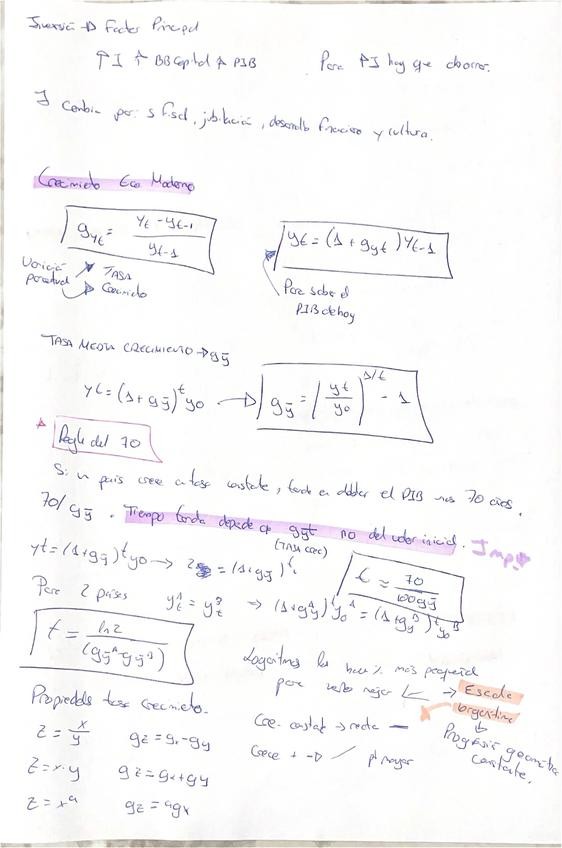 Inversió → Factor Principal
↑I ↑ BB Capital ↑ PIB    Para ↑I hay que ahorrar.
I cambia por: S fiscal, jubilación, desarrollo financiero y cultura.
Crecimiento Eco Moderno
g_yt = (yt - yt-1) / yt-1    yt = (1 + gyt) yt-1
Variació porcentual → TASA Crecimiento
Para saber el PIB de hoy
TASA MEDIA CRECIMIENTO → gȳ
yt = (1 + gȳ)^t y0 → gȳ = (yt / y0)^1/t - 1
Regla del 70
Si un país crece a tasa constante, tarda en doblar el PIB unos 70 años.
70/gȳ. Tiempo tarda depende de gȳt no del valor inicial. Imp
(TASA crec)
yt = (1+gȳ)^t y0 → 2 = (1+gȳ)^t    t ≈ 70 / 100gȳ
Para 2 países    y^A_t = y^B_t ⇒ (1+g^A_y)^t y^A_0 = (1+g^B_y)^t y^B_0
t = ln 2 / (gȳ^A gȳ^B)
Logaritmos los hace % más pequeña
para verlo mejor → Escala
Propiedades tasa crecimiento.
Cre. constat → recta —
Progresió geométrica constante.
Crece + →    pt mayor
z = x/y    gz = gx - gy
z = x·y    gz = gx + gy
z = x^a    gz = agx